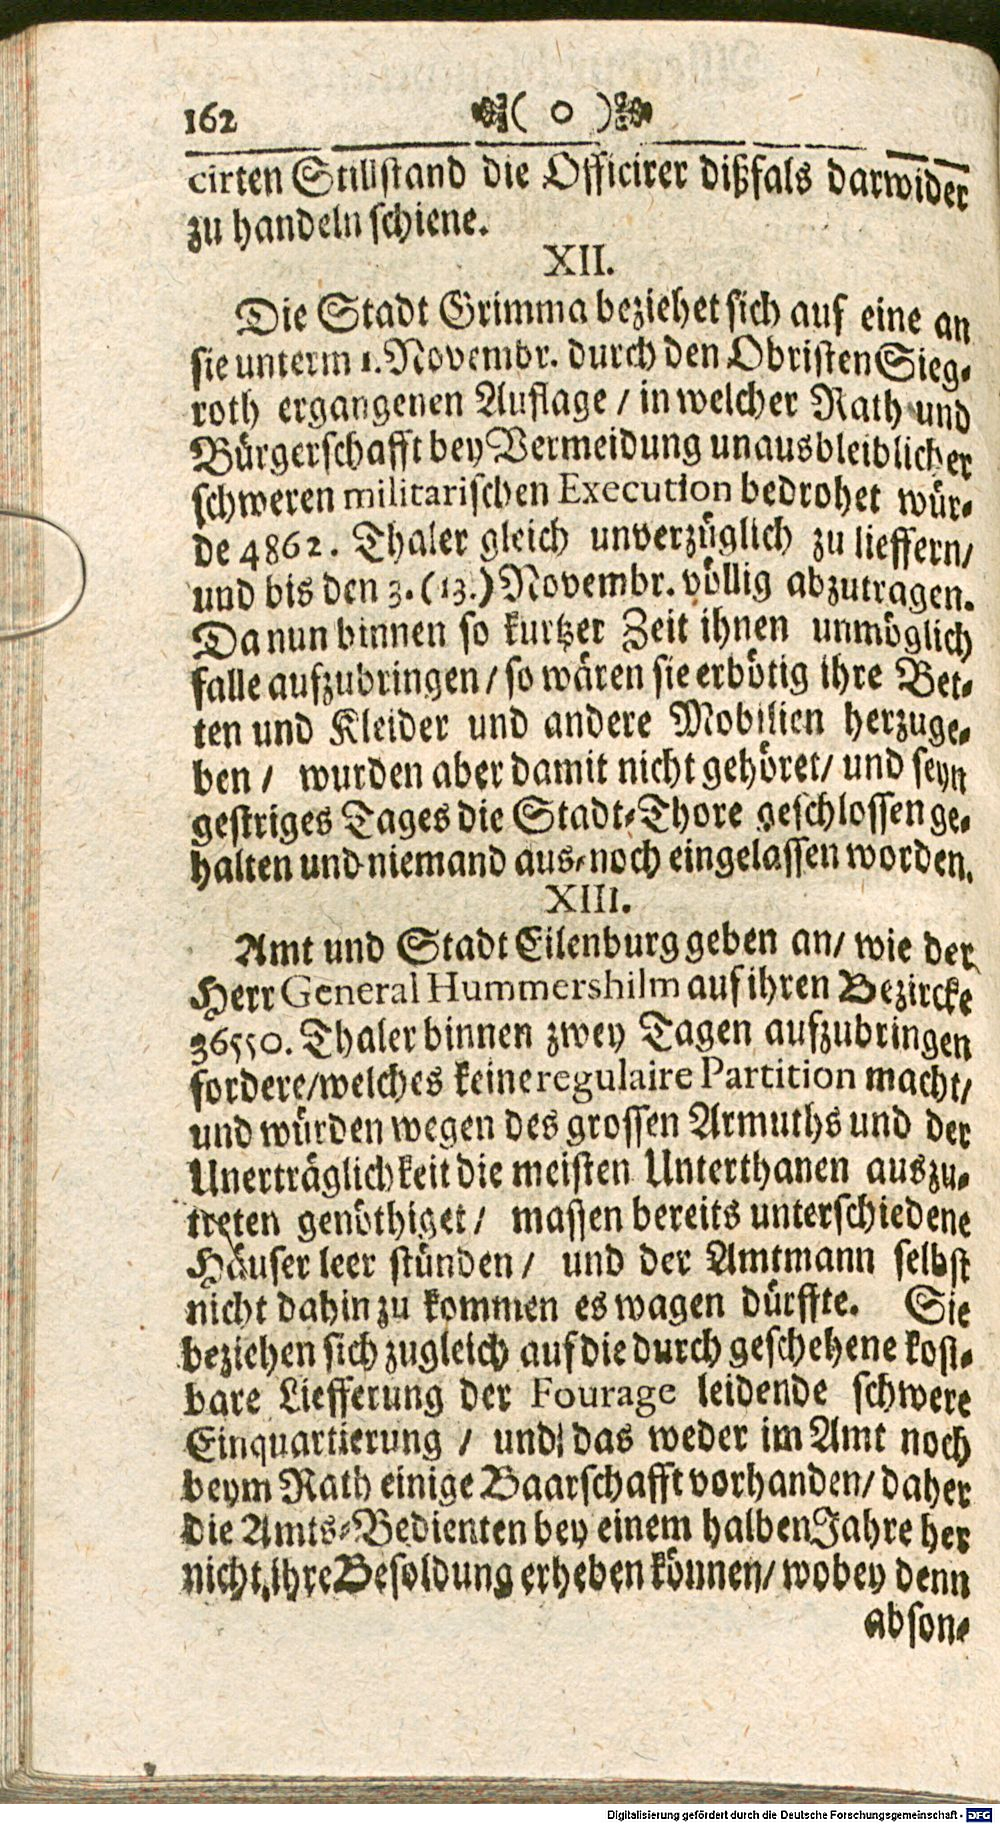 162 ( o )
cirten Stillstand die Officirer dißfals darwider
zu handeln schiene.
XII.
Die Stadt Grimma beziehet sich auf eine an
sie unterm 1. Novembr. durch den Obristen Sieg-
roth ergangenen Auflage / in welcher Rath und
Bürgerschafft bey Vermeidung unausbleiblicher
schweren militarischen Execution bedrohet wür-
de 4862. Thaler gleich unverzüglich zu lieffern/
und bis den 3. (13.) Novembr. völlig abzutragen.
Da nun binnen so kurtzer Zeit ihnen unmöglich
falle aufzubringen / so wären sie erbötig ihre Bet-
ten und Kleider und andere Mobilien herzuge-
ben / wurden aber damit nicht gehöret/ und seyn
gestriges Tages die Stadt-Thore geschlossen ge-
halten und niemand aus-noch eingelassen worden.
XIII.
Amt und Stadt Eilenburg geben an/ wie der
Herr General Hummershilm auf ihren Bezircke
36550. Thaler binnen zwey Tagen aufzubringen
fordere/welches keine regulaire Partition macht/
und würden wegen des grossen Armuths und der
Unerträglichkeit die meisten Unterthanen auszu-
treten genöthiget / massen bereits unterschiedene
Häuser leer stünden / und der Amtmann selbst
nicht dahin zu kommen es wagen dürffte. Sie
beziehen sich zugleich auf die durch geschehene kost-
bare Liefferung der Fourage leidende schwere
Einquartierung / und das weder im Amt noch
beym Rath einige Baarschafft vorhanden/ daher
die Amts-Bedienten bey einem halben Jahre her
nicht ihre Besoldung erheben können/ wobey denn
abson-
Digitalisierung gefördert durch die Deutsche Forschungsgemeinschaft - DFG